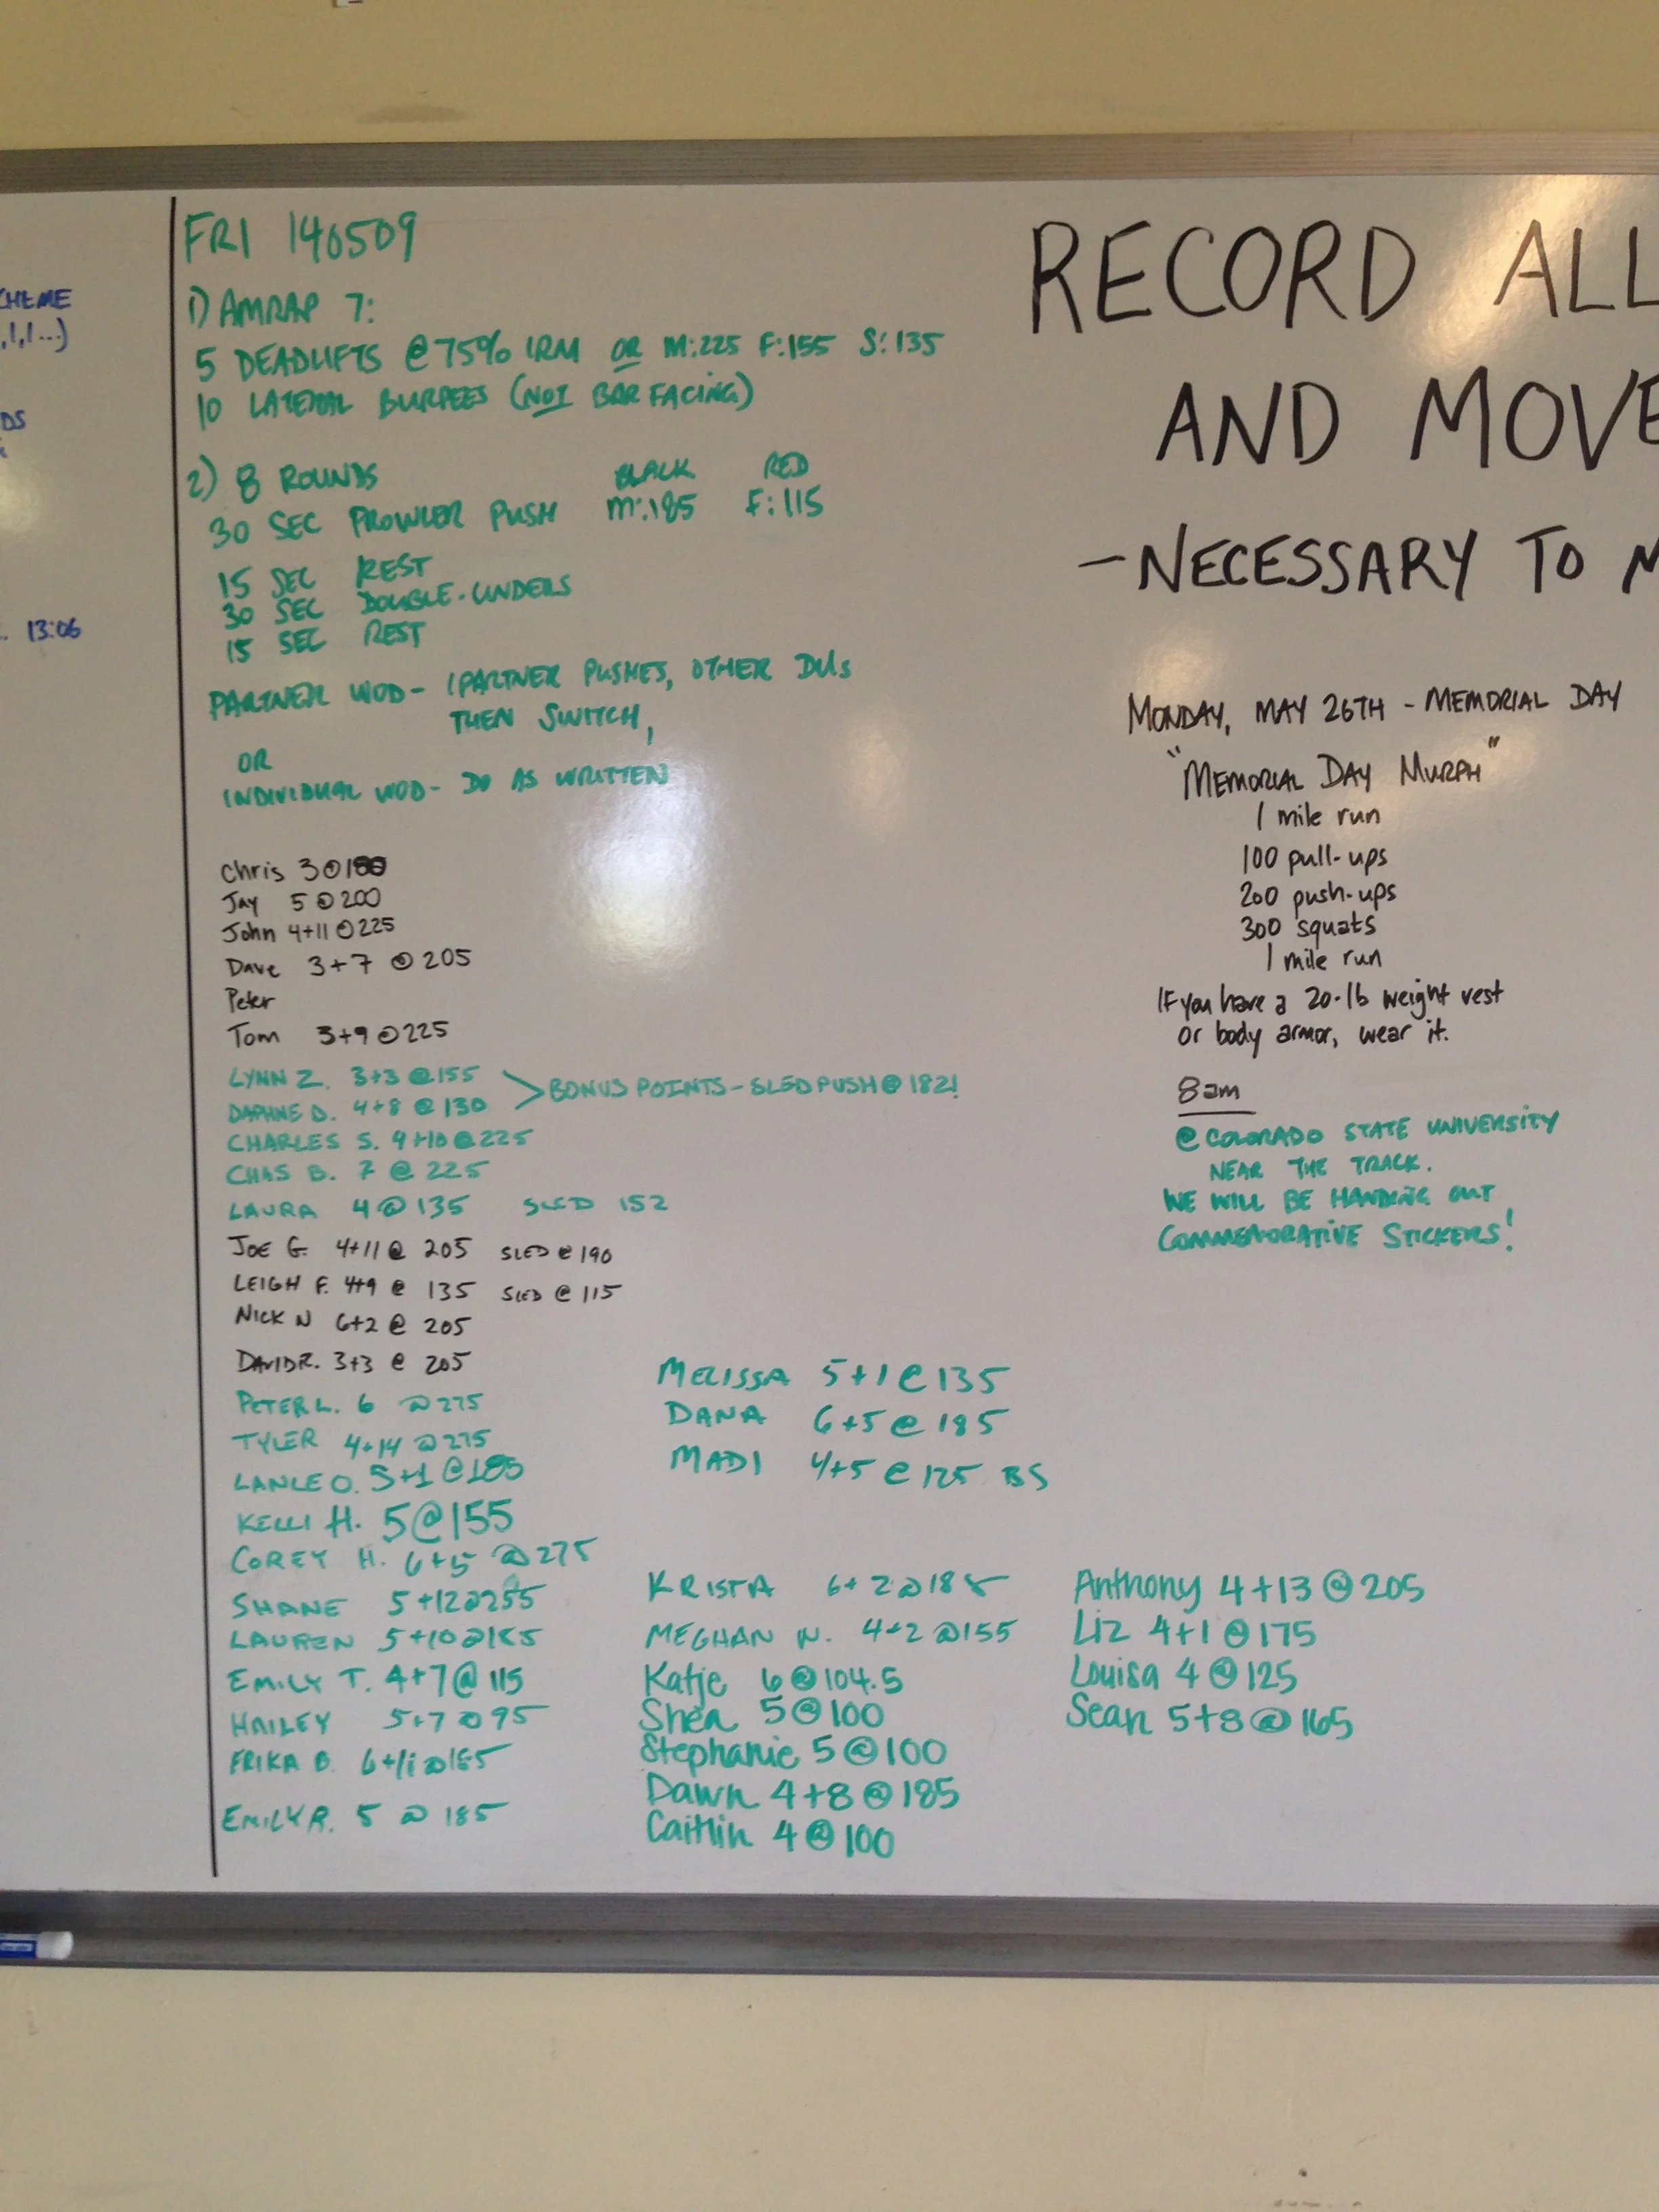 CHEME
,1,1...)
DS
. 13:06
FRI 140509
1) AMRAP 7:
5 DEADLIFTS @ 75% 1RM OR M:225 F:155 S:135
10 LATERAL BURPEES (NOT BAR FACING)
2) 8 ROUNDS BLACK RED
30 SEC PROWLER PUSH M:185 F:115
15 SEC REST
30 SEC DOUBLE-UNDERS
15 SEC REST
PARTNER WOD- 1 PARTNER PUSHES, OTHER DUs
THEN SWITCH,
OR
INDIVIDUAL WOD- DO AS WRITTEN
Chris 3@
Jay 5@200
John 4+11@225
Dave 3+7 @ 205
Peter
Tom 3+9@225
LYNN Z. 3+3 @155
DAPHNE D. 4+8 @ 130
BONUS POINTS - SLED PUSH @ 182!
CHARLES S. 4+10@225
CHAS B. 7 @ 225
LAURA 4@135 SLED 152
JOE G. 4+11@ 205 SLED @ 190
LEIGH F. 4+9 @ 135 SLED @ 115
NICK N 6+2 @ 205
DAVID R. 3+3 @ 205
PETER L. 6
TYLER 4+14
LANCE O. 5+1 @185
KELLI H. 5@155
COREY H. 6+5 @275
SHANE 5+12@255
LAUREN 5+10@
EMILY T. 4+7@115
HAILEY 5+7@95
ERIKA B.
EMILY R. 5 @ 185
MELISSA 5+1@135
DANA 6+5@185
MADI 4+5@125 BS
KRISTA 6+2@185
MEGHAN N. 4+2@155
Katje 6@104.5
Shea 5@100
Stephanie 5@100
Dawn 4+8@185
Caitlin 4@100
Anthony 4+13@205
Liz 4+1@175
Louisa 4@125
Sean 5+8@165
RECORD ALL
AND MOVE
-NECESSARY TO
MONDAY, MAY 26TH - MEMORIAL DAY
"MEMORIAL DAY MURPH"
1 mile run
100 pull-ups
200 push-ups
300 squats
1 mile run
If you have a 20-lb weight vest
or body armor, wear it.
8am
@ COLORADO STATE UNIVERSITY
NEAR THE TRACK.
WE WILL BE HANDING OUT
COMMEMORATIVE STICKERS!